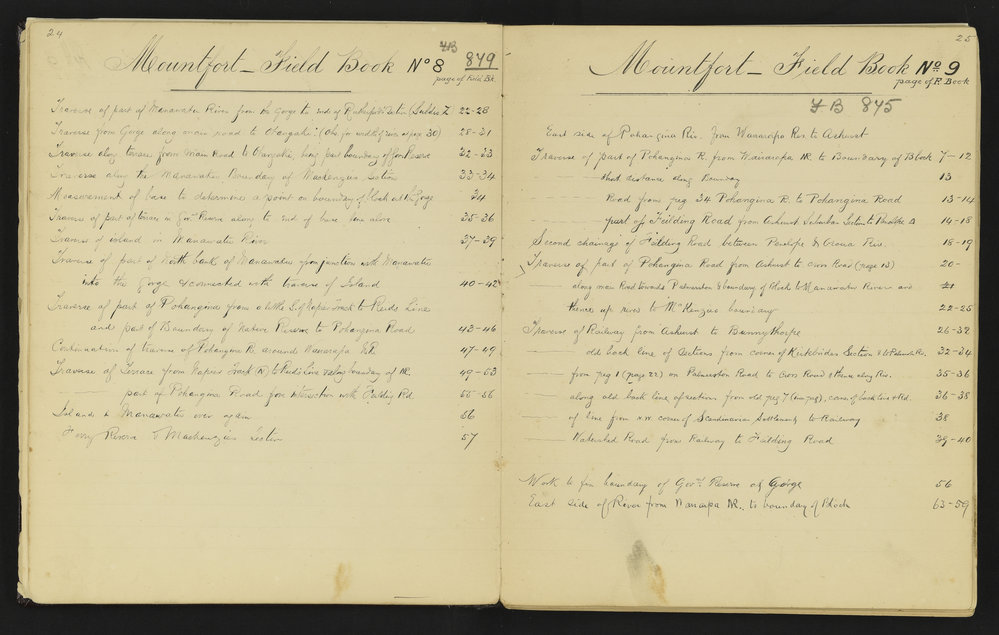 24
Mountfort - Field Book No 8 FB 849
page of Field Bk.
Traverse of part of Manawatu River from the Gorge to end of Section 22-28
Traverse from Gorge along main road to Otangaki 28-31
Traverse along terrace from main Road to Otangaki, being part boundary of Gov Reserve 32-33
Traverse along the Manawatu Boundary of Mackenzies Section 33-34
Measurement of base to determine a point on boundary of block at the Gorge 34
Traverse of part of terrace in Govt Reserve along to end of base line above 35-36
Traverse of island in Manawatu River 37-39
Traverse of part of North bank of Manawatu from junction with Manawatu
into the gorge & connected with traverse of Island 40-42
Traverse of part of Pohangina from a little S of Napier Track to Reids Line
and part of Boundary of Native Reserve to Pohangina Road 43-46
Continuation of traverse of Pohangina R. around Wauarapa NR 47-49
Traverse of Terrace from Napier track (N) to Reids Line & along boundary of NR. 49-53
part of Pohangina Road from Intersection with Feilding Rd. 55-56
Islands in Manawatu over again 56
Ferry Reserve & Mackenzies Section 57
25
Mountfort - Field Book No 9
page of F. Book
FB 845
East side of Pohangina Riv. from Wauarapa Res. to Ashurst
Traverse of part of Pohangina R. from Wauarapa NR. to Boundary of Block 7-12
short distance along Boundary 13
Road from peg 34 Pohangina R. to Pohangina Road 13-14
part of Feilding Road from Ashurst Suburban Section to 14-18
Second chainage of Feilding Road between & Oroua Riv. 18-19
Traverse of part of Pohangina Road from Ashurst to cross Road (page 13) 20-
along main Road towards Palmerston & boundary of Block to Manawatu River and 21
thence up river to McKenzies boundary 22-25
Traverse of Railway from Ashurst to Bunnythorpe 26-32
old back line of Sections from corner of Kirkbrides Section & to Palmerston Res. 32-34
from peg 1 (page 22) on Palmerston Road to Cross Road & thence along Riv. 35-36
along old back line of section from old peg 7 36-38
of line from N.W. corner of Scandinavian Settlement to Railway 38
Watershed Road from Railway to Feilding Road 39-40
Work to fix boundary of Govt. Reserve at Gorge 56
East side of River from Wauarapa NR. to boundary of Block 63-59